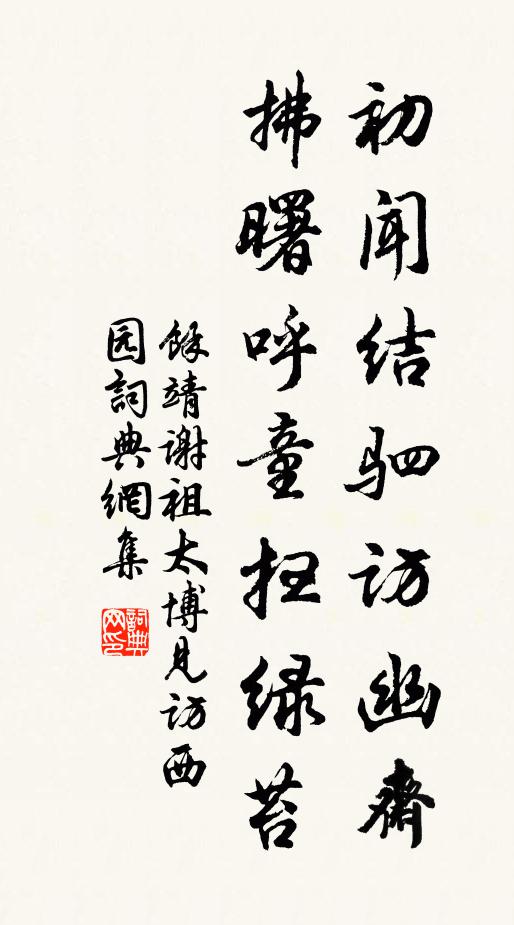 初闻结驷访幽斋
拂曙呼童扫绿苔
馀靖谢祖太博见访西
园詞典網集
詞典网印